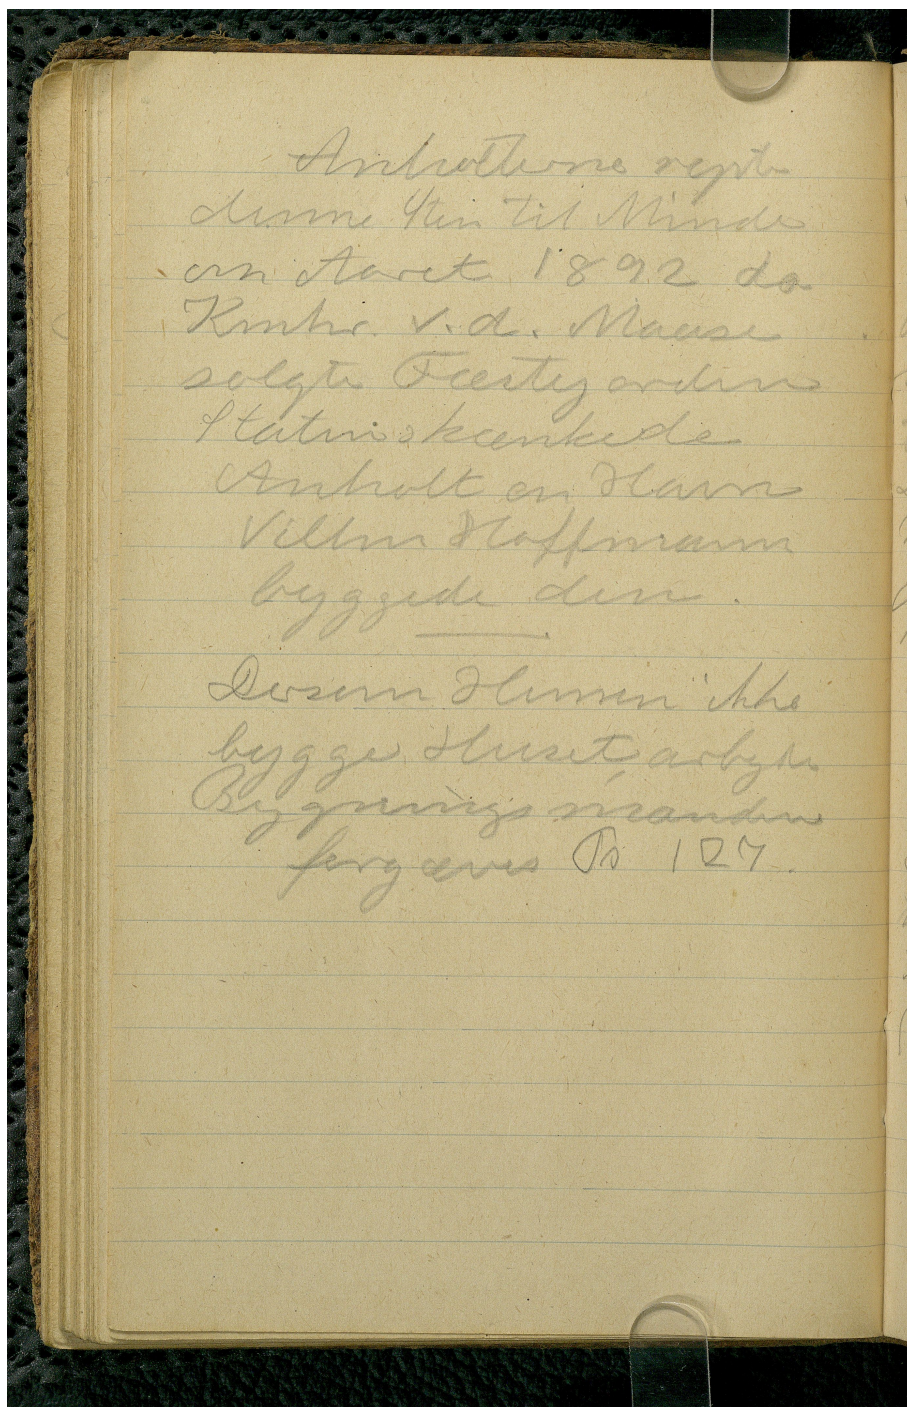 Anholterne rejste
denne Sten til Minde
om Aaret 1892 da
Kmhr. v. d. Maase
solgte Fæstejorden
Staten skænkede
Anholt en Havn
Villum Hoffmann
byggede den.
Dersom Herren ikke
bygger Huset, arbejde
Bygningsmændene
forgæves Ps 127.